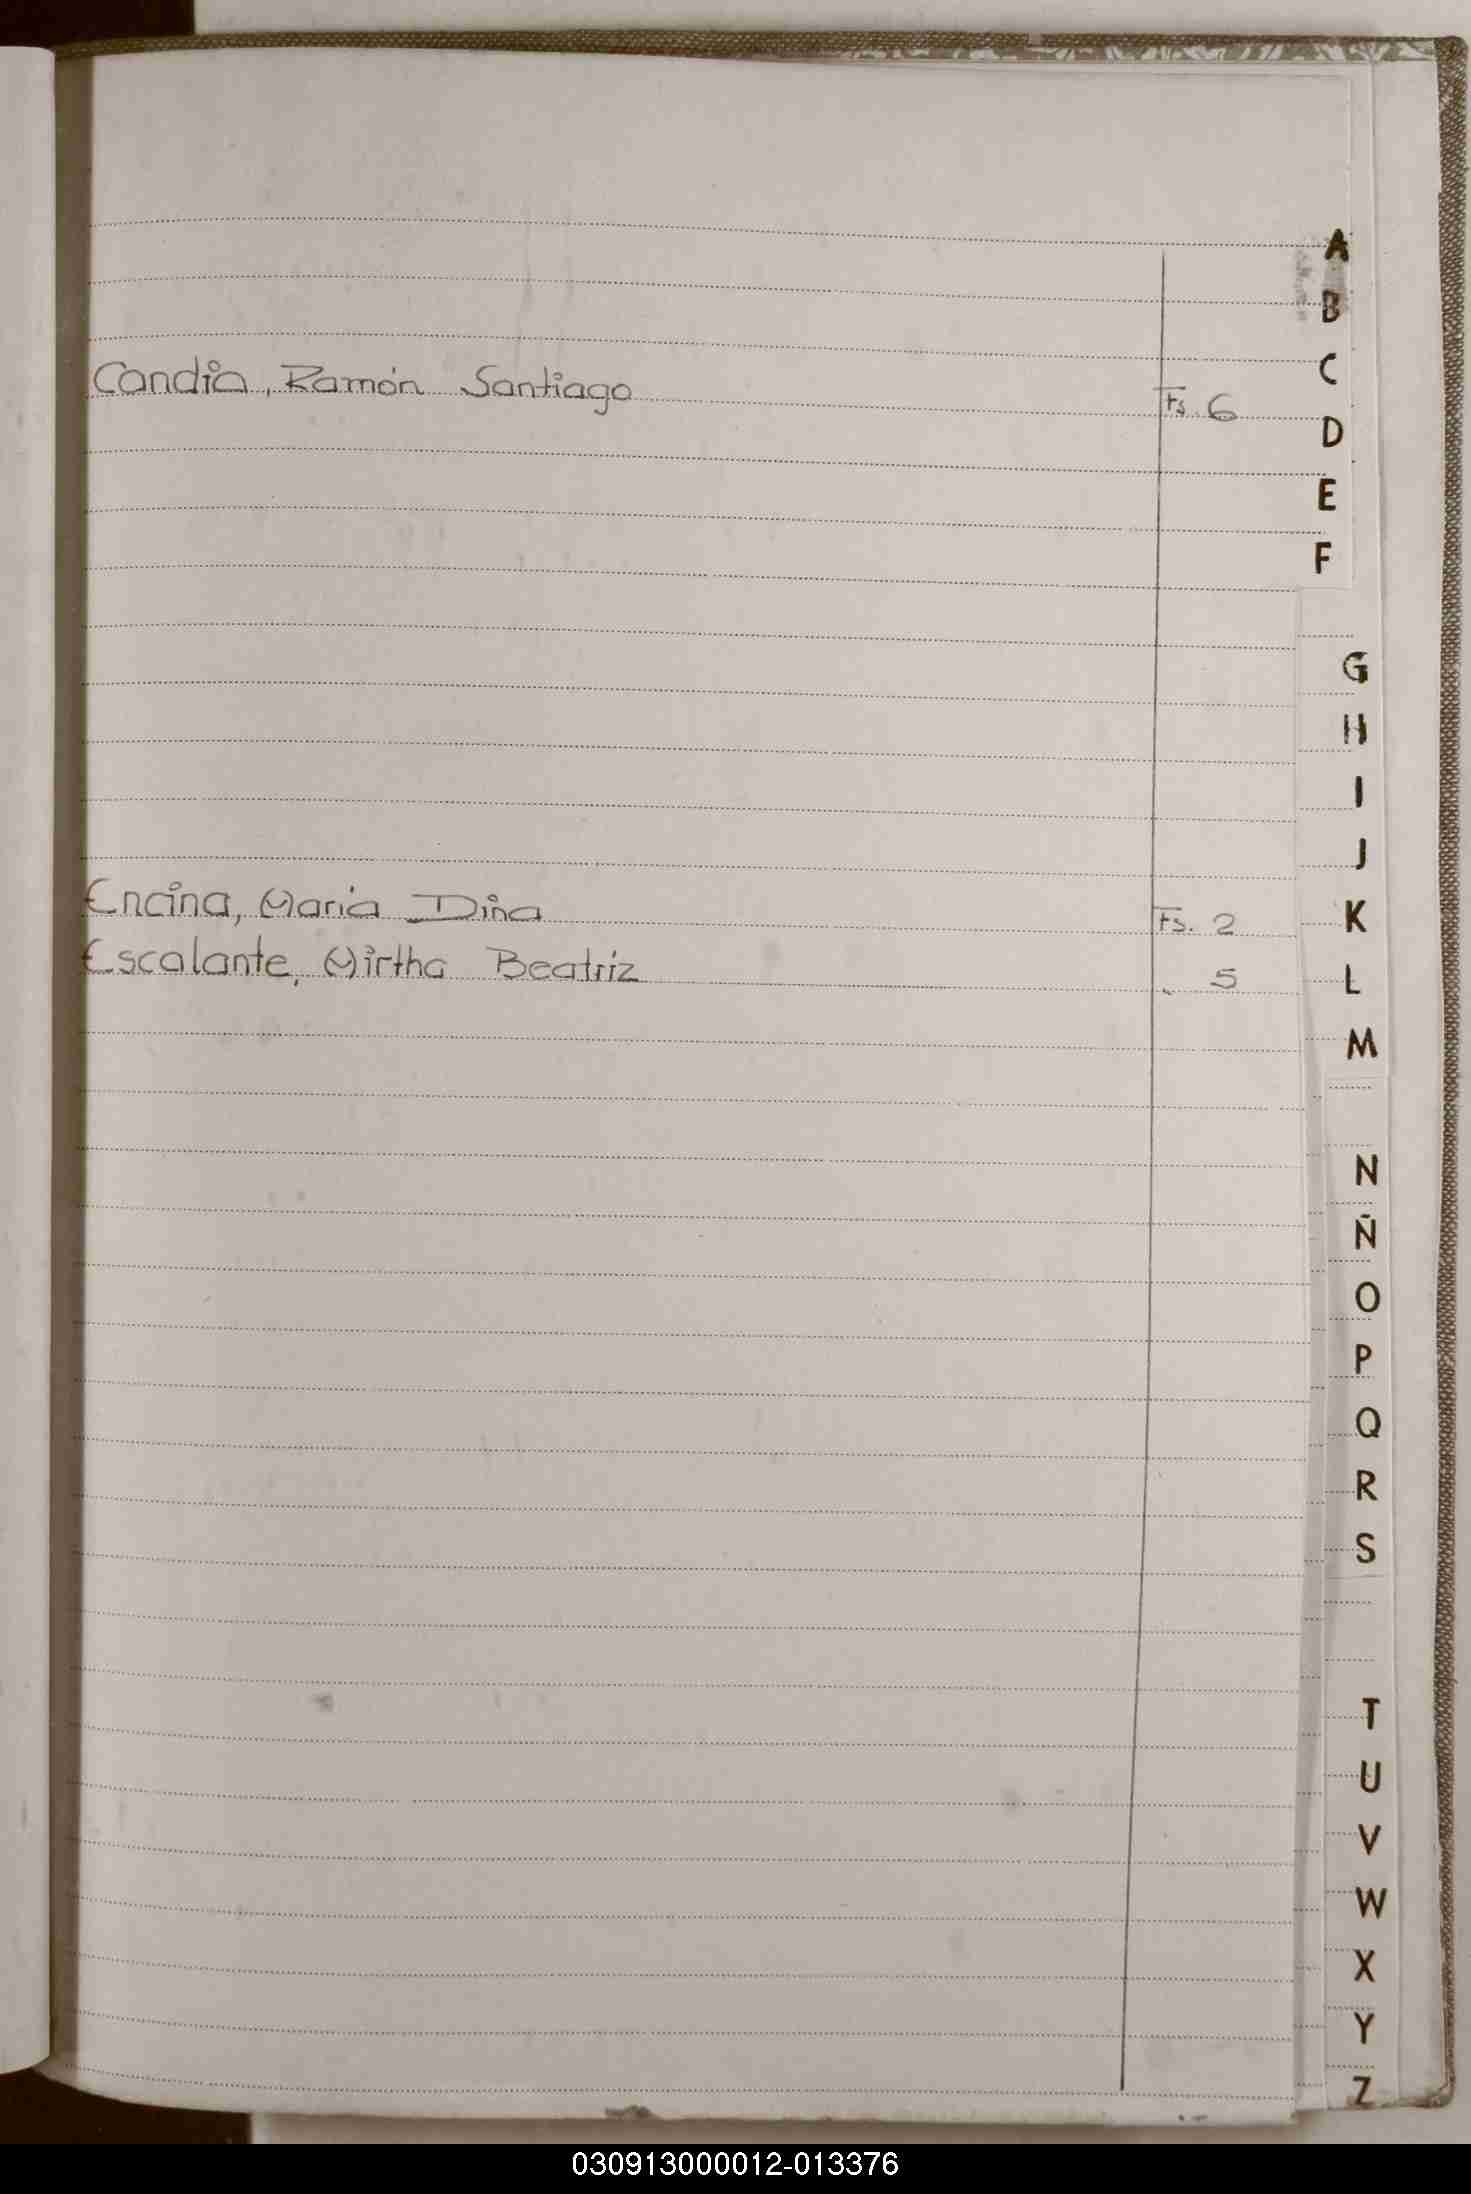 A
B
C
Candia, Ramón Santiago Fs. 6
D
E
F
G
H
I
J
Encina, Maria Dina Fs. 2
K
Escalante, Mirtha Beatriz " 5
L
M
N
Ñ
O
P
Q
R
S
T
U
V
W
X
Y
Z
030913000012-013376